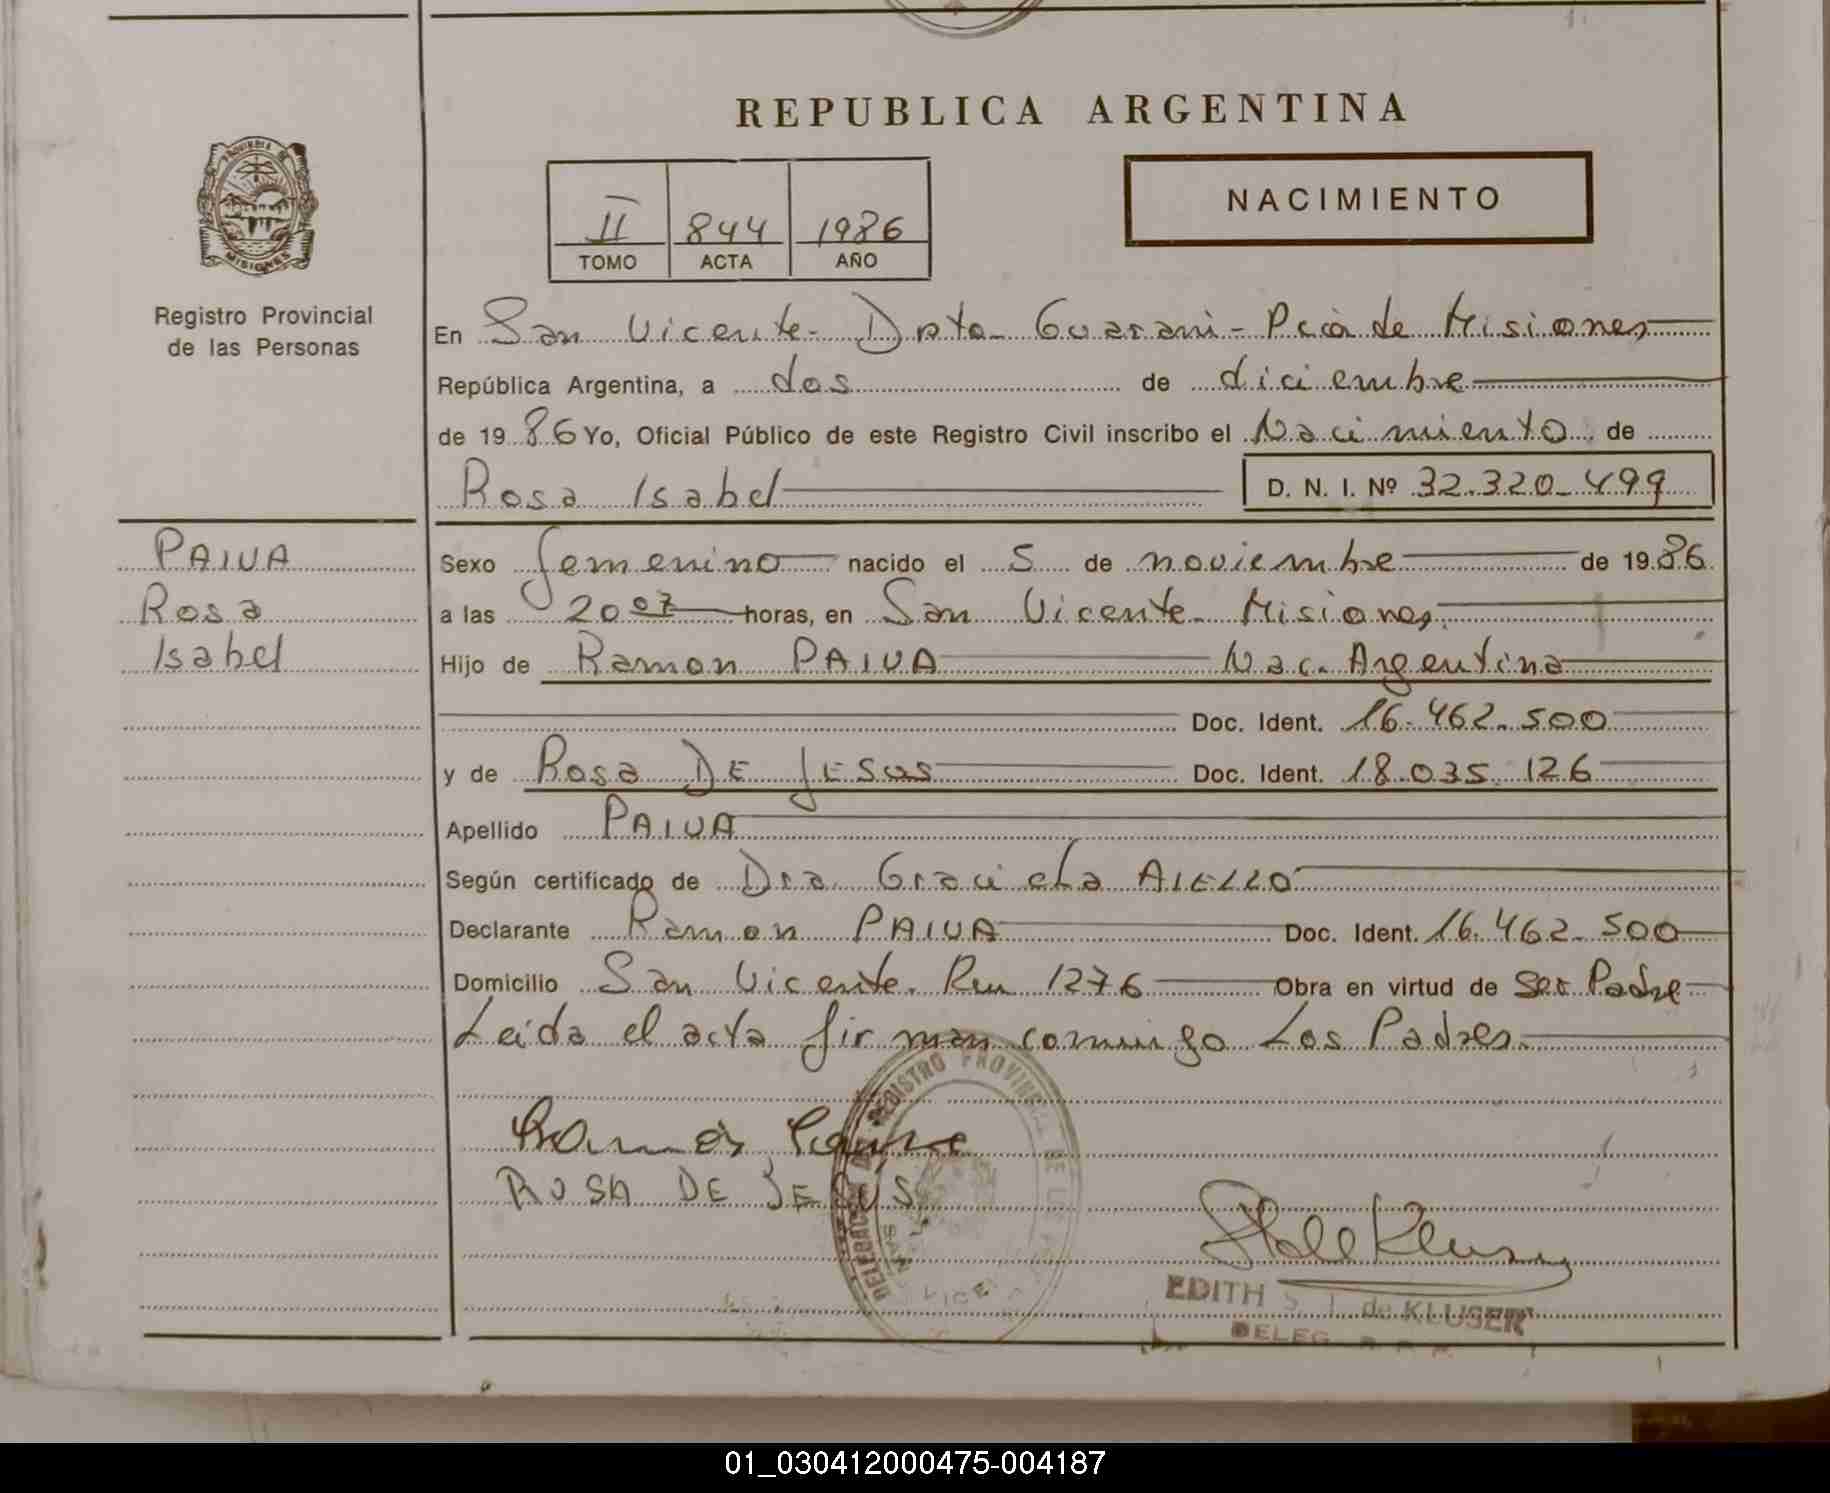 REPUBLICA ARGENTINA
PROVINCIA DE
MISIONES
Registro Provincial
de las Personas
II 844 1986
TOMO ACTA AÑO
NACIMIENTO
En San Vicente - Dpto - Guarani - Pcia de Misiones
República Argentina, a dos de diciembre
de 1986 Yo, Oficial Público de este Registro Civil inscribo el Nacimiento de
Rosa Isabel D. N. I. Nº 32.320.499
PAIVA
Rosa
Isabel
Sexo femenino nacido el 5 de noviembre de 1986
a las 20 07 horas, en San Vicente - Misiones
Hijo de Ramon PAIVA Nac. Argentina
Doc. Ident. 16.462.500
y de Rosa DE JESUS Doc. Ident. 18.035.126
Apellido PAIVA
Según certificado de Dra. Graciela AIELLO
Declarante Ramon PAIVA Doc. Ident. 16.462.500
Domicilio San Vicente. Km 1276 Obra en virtud de Ser Padre
Leida el acta firman conmigo Los Padres.
ROSA DE JESUS
DELEGACION DEL REGISTRO PROVINCIAL DE LAS
SAN VICE
EDITH S. de KLUSER
DELEG. R. P. P.
01_030412000475-004187